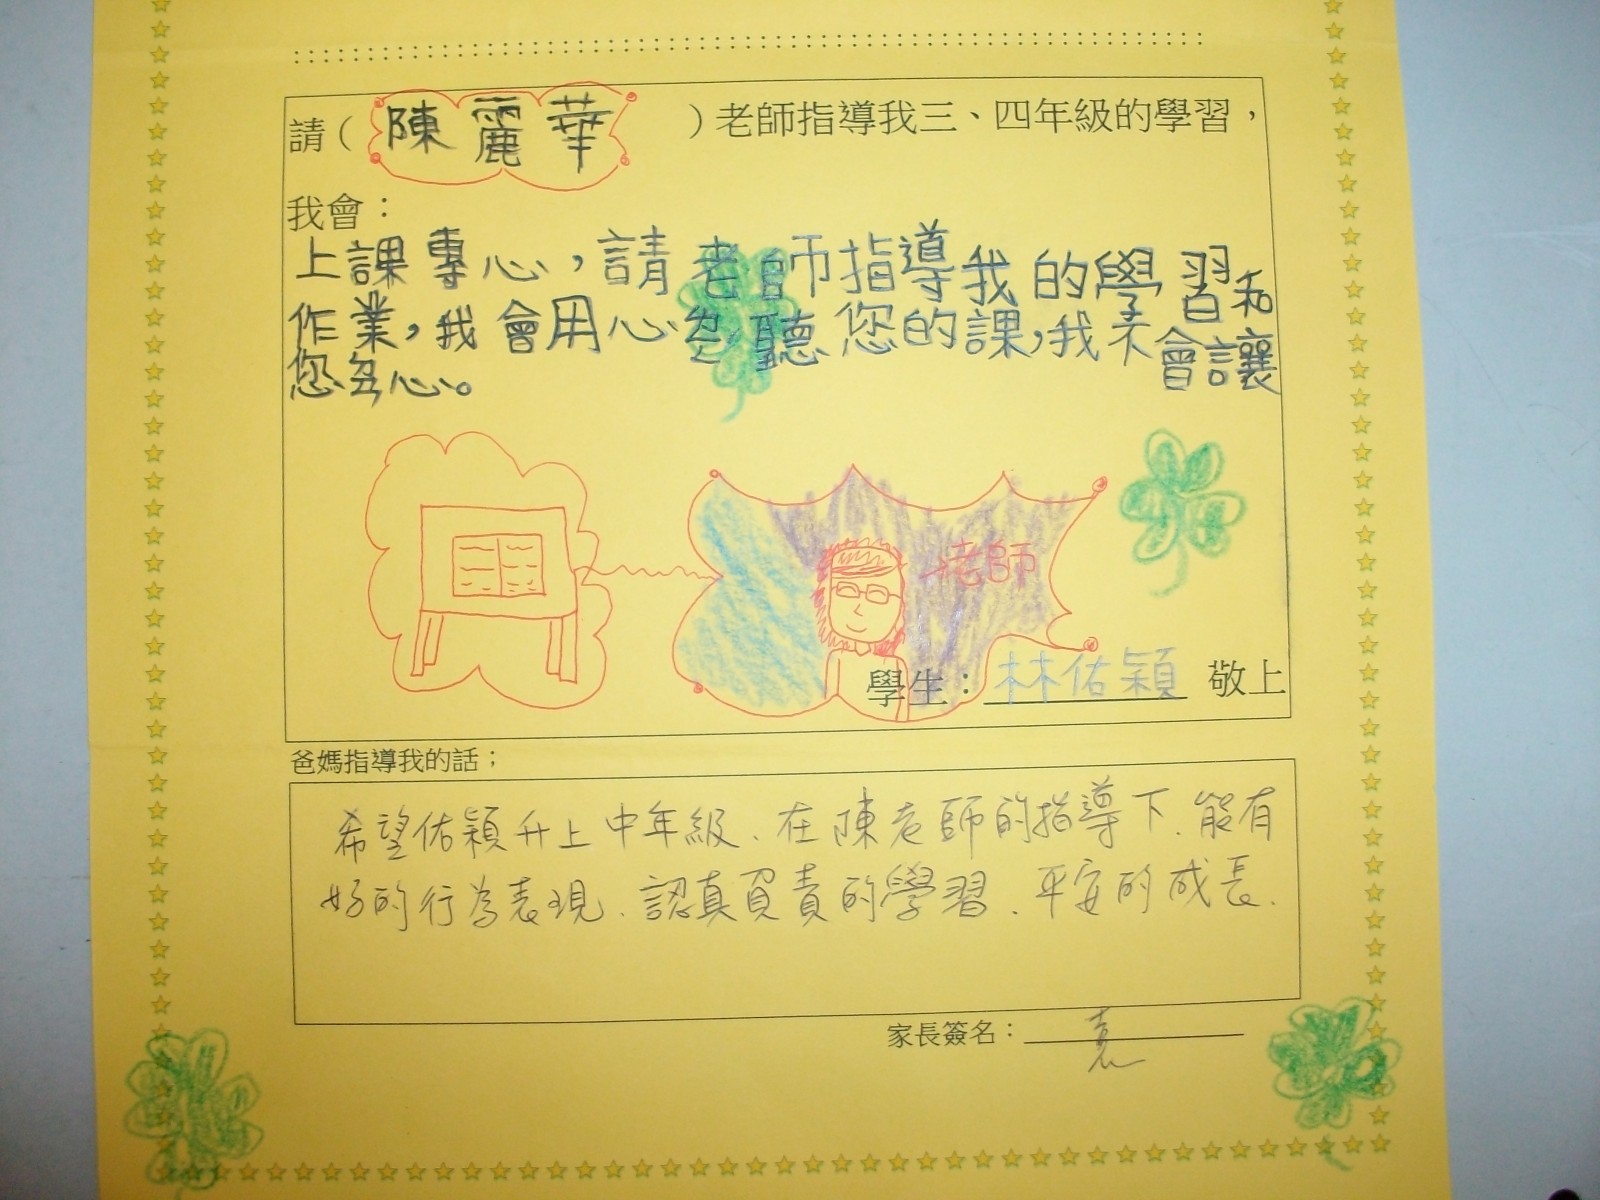 請（陳麗華）老師指導我三、四年級的學習，
我會：
上課專心，請老師指導我的學習和
作業，我會用心聽您的課，我不會讓
您心。
老師
學生：林佑穎 敬上
爸媽指導我的話；
希望佑穎升上中年級、在陳老師的指導下、能有
好的行為表現、認真負責的學習、平安的成長.
家長簽名：